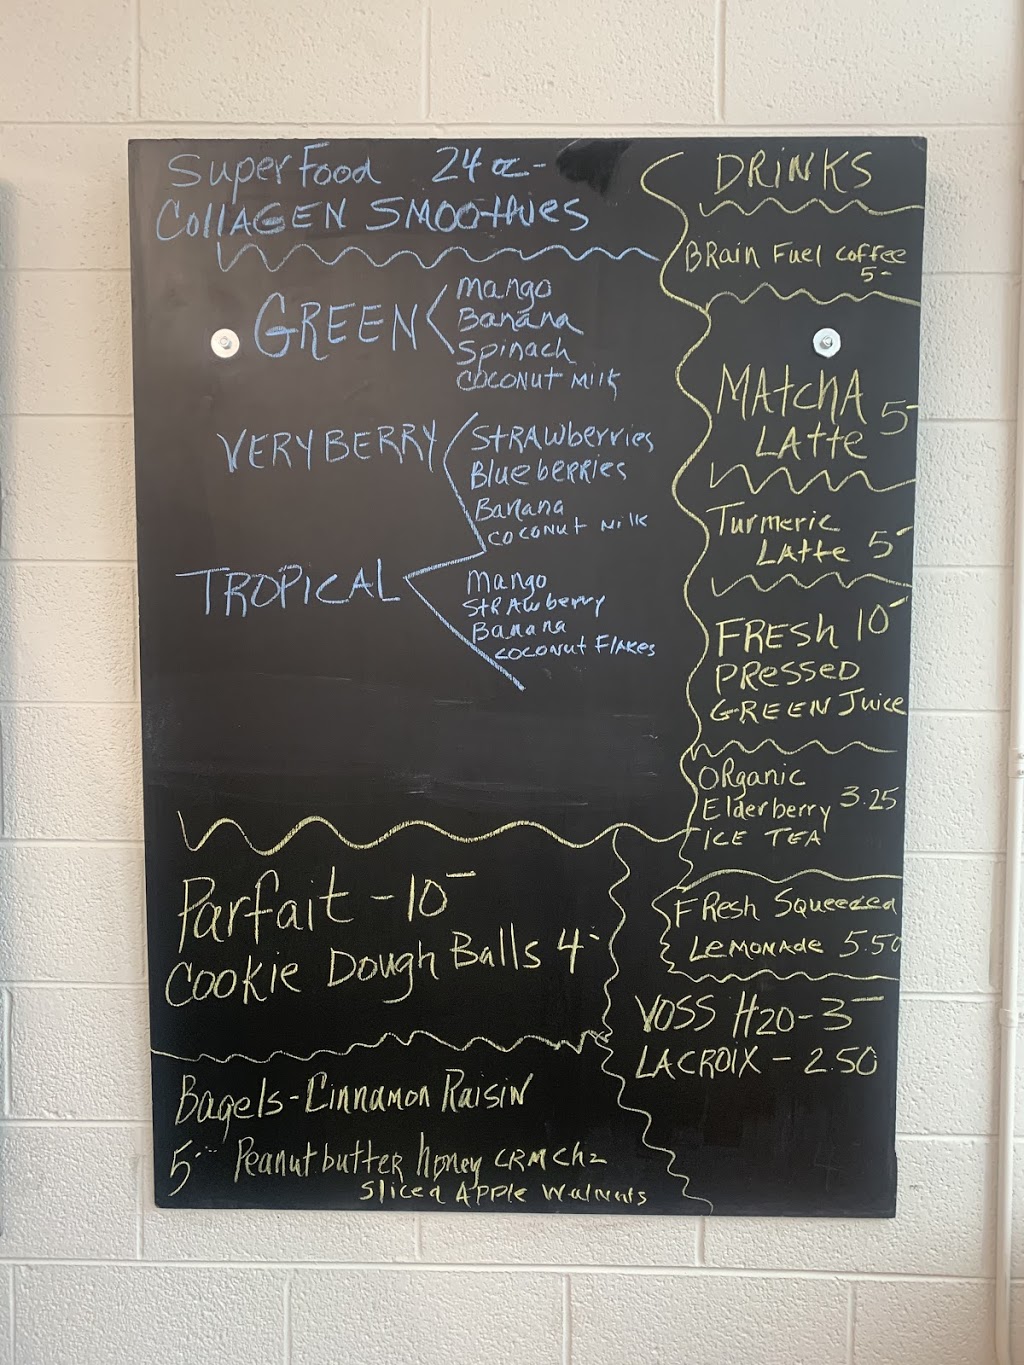 Super Food 24oz-
Collagen Smoothies
GREEN
Mango
Banana
Spinach
Coconut Milk
VERY BERRY
Strawberries
Blueberries
Banana
Coconut Milk
TROPICAL
Mango
Strawberry
Banana
Coconut Flakes
Parfait - 10-
Cookie Dough Balls 4-
Bagels - Cinnamon Raisin
5- Peanut butter honey
Sliced Apple Walnuts
DRINKS
Brain Fuel Coffee
5-
Matcha 5-
Latte
Turmeric
Latte 5-
FRESH 10-
PRESSED
GREEN Juice
Organic
Elderberry 3.25
ICE TEA
Fresh Squeezed
Lemonade 5.50
VOSS H20 - 3-
LACROIX - 2.50